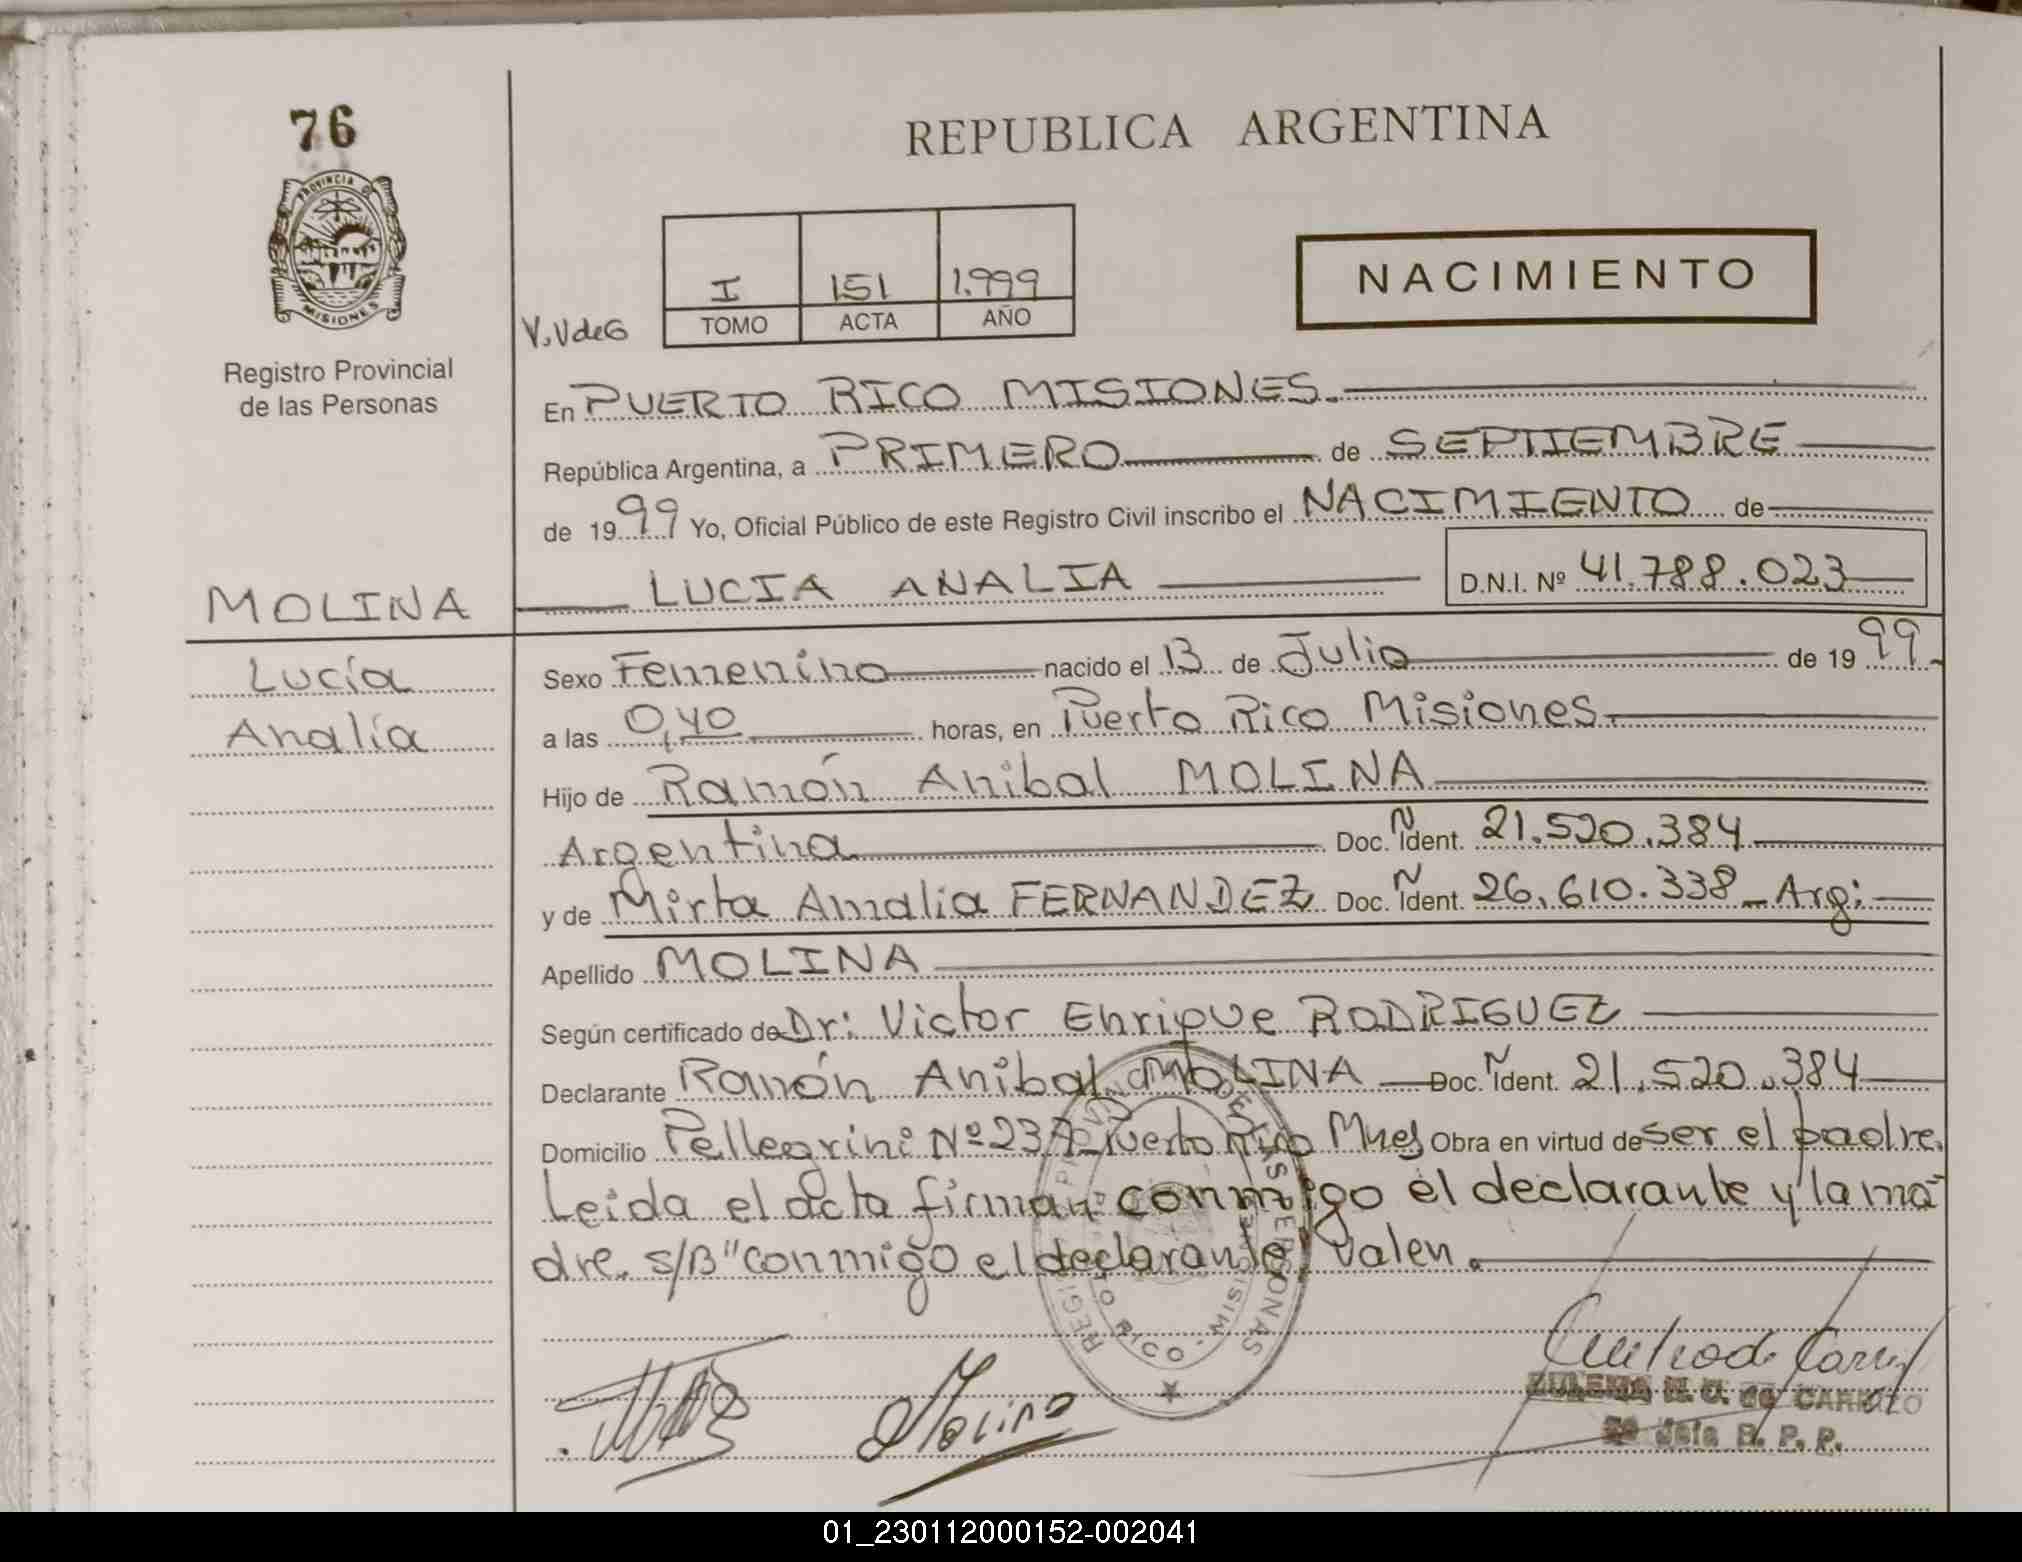 76
PROVINCIA DE
MISIONES
Registro Provincial
de las Personas
REPUBLICA ARGENTINA
I 151 1.999
TOMO ACTA AÑO
V.VdeG
NACIMIENTO
En PUERTO RICO MISIONES.
República Argentina, a PRIMERO de SEPTIEMBRE
de 1999 Yo, Oficial Público de este Registro Civil inscribo el NACIMIENTO de
MOLINA LUCIA ANALIA D.N.I. Nº 41.788.023
Lucía
Analía
Sexo Femenino nacido el 13 de Julio de 1999.
a las 0,40 horas, en Puerto Rico Misiones.
Hijo de Ramón Anibal MOLINA
Argentina Doc. Ñ Ident. 21.520.384
y de Mirta Amalia FERNANDEZ Doc. Ñ Ident. 26.610.338 - Arg:
Apellido MOLINA
Según certificado de Dr: Victor Enrique RODRIGUEZ
Declarante Ramón Anibal MOLINA Doc. Ñ Ident. 21.520.384
Domicilio Pellegrini Nº 237 Puerto Rico Mnes Obra en virtud de ser el padre.
Leida el acta firman conmigo el declarante y la ma-
dre. s/B "conmigo el declarante" Valen.
PUERTO RICO - MISIONES
Molina
ZULEMA N. U. de CARRIZO
Jefe R. P. P.
01_230112000152-002041